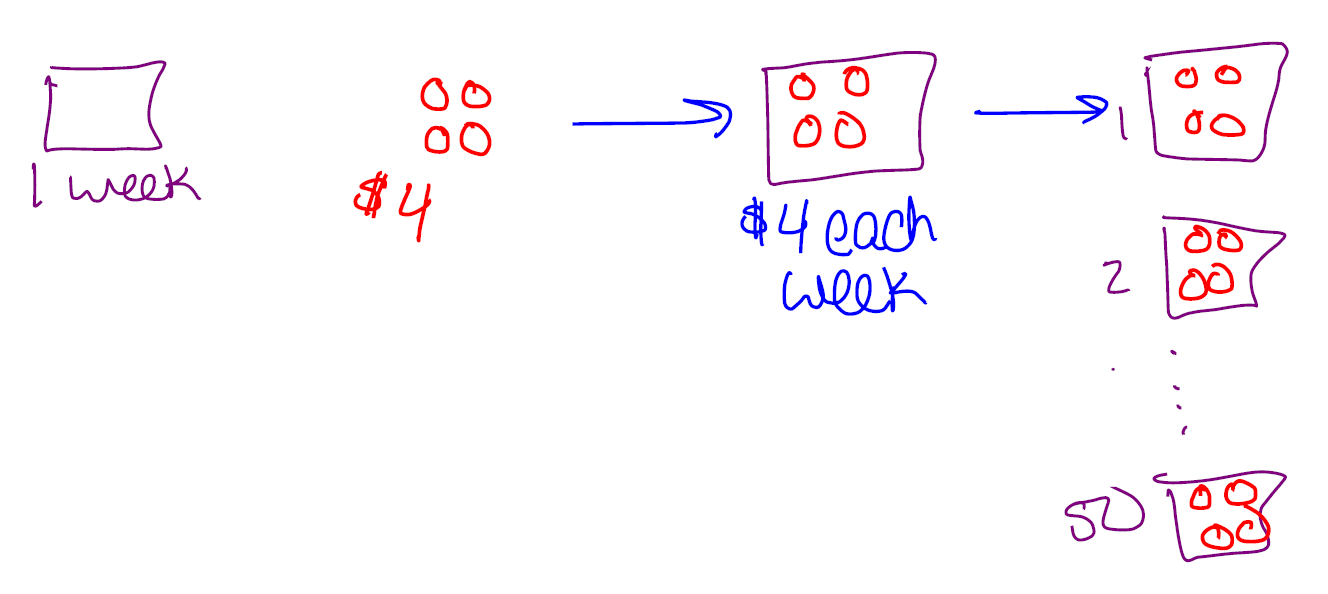 1 week
$4
$4 each
week
1
2
50